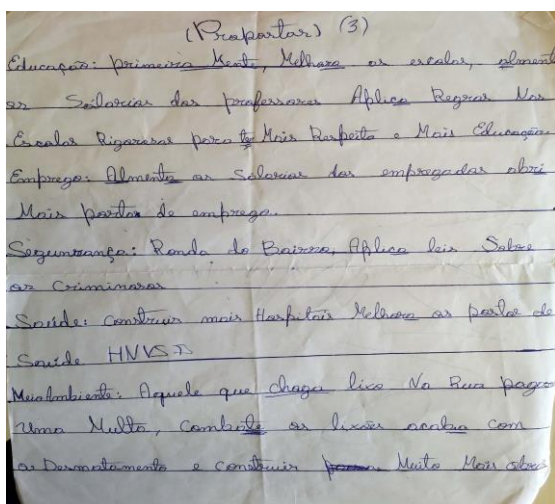 (Prapostas) (3)
Educação: primeira Mente, Melhora as escolas, alment
as Salarias das professores Aplica Regras Nas
Escolas Rigorosas para te Mais Respeito e Mais Educação
Emprego: Almenta as Salarias das empregadas abri
Mais postos de emprego.
Segumrança: Ronda do Bairro, Aplica leis Sobre
os Criminosos
Saúde: Construir mais Hospitais Melhora os postos de
Saúde
Meio Ambiente: Aquele que choga lixo Na Rua pagara
uma Multa, Combate os lixões acaba com
os Desmatamento e construir Muito Mais obras